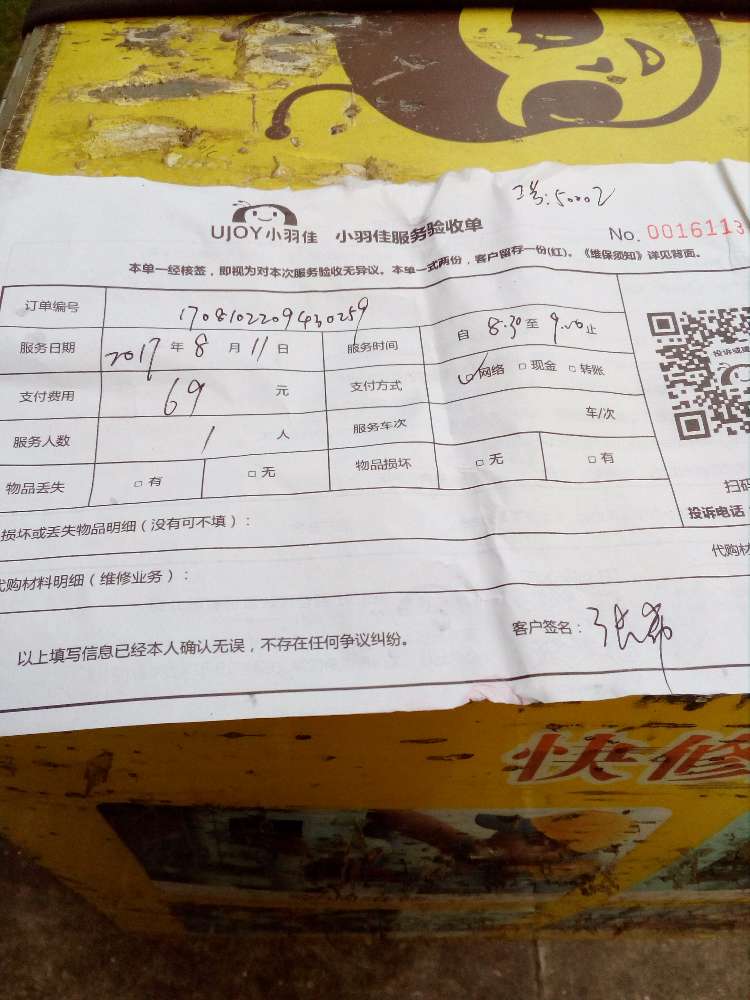 工号:50002
UJOY小羽佳 小羽佳服务验收单
No. 0016113
本单一经核签，即视为对本次服务验收无异议。本单一式两份，客户留存一份(红)。《维保须知》详见背面。
订单编号 1708102209430259
服务日期 2017年8月11日 服务时间 自8:30至9:00止
支付费用 69元 支付方式 网络 现金 转账
服务人数 1人 服务车次 车/次
物品丢失 有 无 物品损坏 无 有
扫码
投诉电话
损坏或丢失物品明细（没有可不填）：
代购材料明细（维修业务）：
代购材
以上填写信息已经本人确认无误，不存在任何争议纠纷。
客户签名：
快修